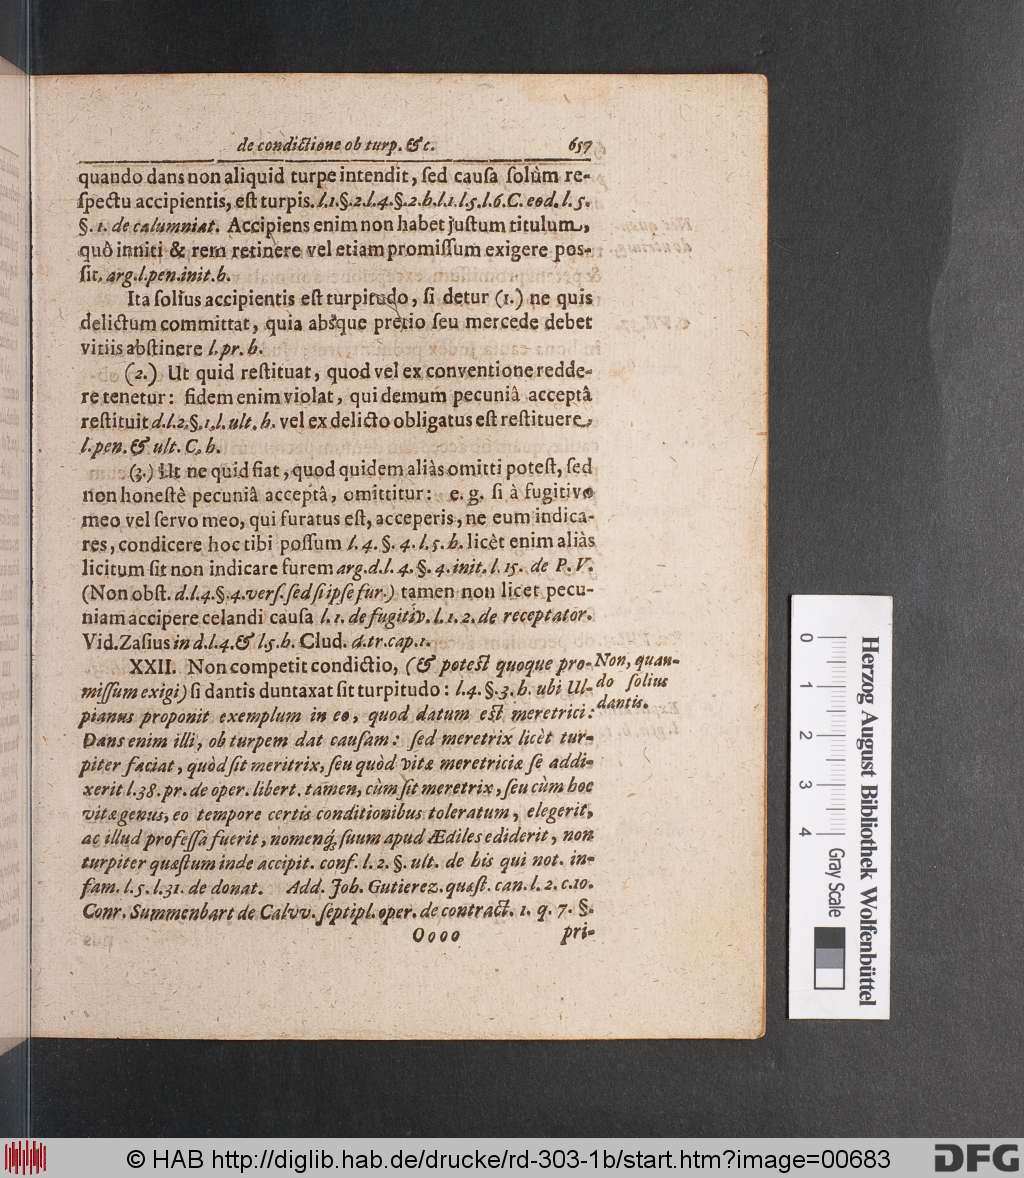 de condictione ob turp. &c. 657
quando dans non aliquid turpe intendit, ſed cauſa ſolùm re-
ſpectu accipientis, eſt turpis. l.1.§.2.l.4.§.2.h.l.1.l.5.l.6.C.eod.l.5.
§.1. de calumniat. Accipiens enim non habet juſtum titulum,
quô inniti & rem retinere vel etiam promiſſum exigere poſ-
ſit. arg.l.pen.init.h.
Ita ſolius accipientis eſt turpitudo, ſi detur (1.) ne quis
delictum committat, quia absque pretio ſeu mercede debet
vitiis abſtinere l.pr.h.
(2.) Ut quid reſtituat, quod vel ex conventione redde-
re tenetur: fidem enim violat, qui demum pecuniâ acceptâ
reſtituit d.l.2.§.1.l.ult.h. vel ex delicto obligatus eſt reſtituere,
l.pen.& ult.C.h.
(3.) Ut ne quid fiat, quod quidem aliàs omitti poteſt, ſed
non honeſtè pecuniâ acceptâ, omittitur: e. g. ſi à fugitivo
meo vel ſervo meo, qui furatus eſt, acceperis, ne eum indica-
res, condicere hoc tibi poſſum l.4.§.4.l.5.h. licèt enim aliàs
licitum ſit non indicare furem arg.d.l.4.§.4.init.l.15. de P.V.
(Non obſt. d.l.4.§.4.verſ.ſed ſi ipſe fur.) tamen non licet pecu-
niam accipere celandi cauſa l.1. de fugitiv.l.1.2.de receptator.
Vid. Zaſius in d.l.4.& l.5.h. Clud. d.tr.cap.1.
XXII. Non competit condictio, (& poteſt quoque pro-
miſſum exigi) ſi dantis duntaxat ſit turpitudo: l.4.§.3.h. ubi Ul-
pianus proponit exemplum in eo, quod datum eſt meretrici:
Dans enim illi, ob turpem dat cauſam: ſed meretrix licèt tur-
piter faciat, quòd ſit meritrix, ſeu quòd vitæ meretriciæ ſe addi-
xerit l.38.pr.de oper.libert. tamen, cùm ſit meretrix, ſeu cùm hoc
vitæ genus, eo tempore certis conditionibus toleratum, elegerit,
ac illud profeſſa fuerit, nomenq́; ſuum apud Ædiles ediderit, non
turpiter quæſtum inde accipit. conf. l.2.§.ult. de his qui not. in-
fam.l.5.l.31. de donat. Add. Joh. Gutierez. quæſt. can.l.2.c.10.
Conr. Summenbart de Calvv. ſeptipl. oper. de contract. 1. q. 7. §.
Oooo pri-
Non, quan-
do ſolius
dantis.
Herzog August Bibliothek Wolfenbüttel
0 1 2 3 4
Gray Scale
© HAB http://diglib.hab.de/drucke/rd-303-1b/start.htm?image=00683
DFG